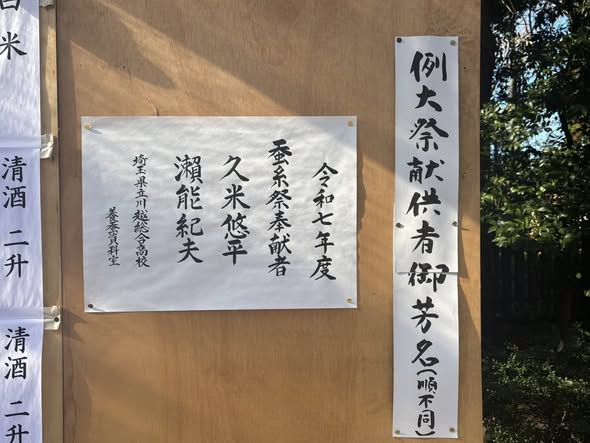 例大祭献供者御芳名(順不同)
令和七年度
蚕糸祭奉献者
久米悠平
瀬能紀夫
埼玉県立川越総合高校
養蚕資料室
白米
清酒 二升
清酒 二升